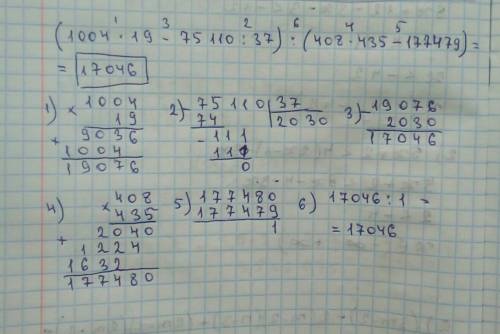 1 3 2 6 4 5
(1004 · 19 - 75110 : 37) : (408 · 435 - 177479) =
= 17046
1) × 1004
19
+ 9036
1004
19076
2) - 75110 | 37
74 2030
- 111
111
0
3) - 19076
2030
17046
4) × 408
435
+ 2040
1224
1632
177480
5) 177480
177479
1
6) 17046 : 1 =
= 17046